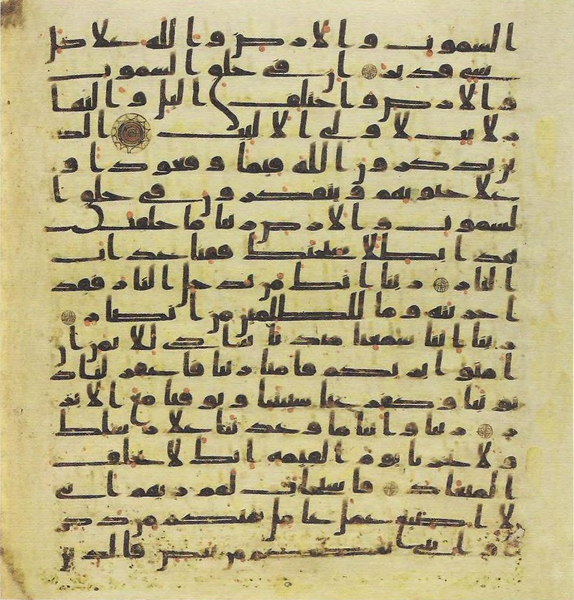 السموت والارض والله علا كل
شي قدير ان في خلق السموت
والارض واختلف اليل والنها
ر لايت لاولي الالبب الذ
ين يذكرون الله قيما وقعودا و
علا جنوبهم ويتفكرون في خلق ا
لسموت والارض ربنا ما خلقت
هذا بطلا سبحنك فقنا عذاب
النار ربنا انك من تدخل النار فقد
اخزيته وما للظلمين من انصار
ربنا اننا سمعنا مناديا ينادي للايمن ان
امنوا بربكم فامنا ربنا فاغفر لنا ذ
نوبنا وكفر عنا سيتنا وتوفنا مع الابر
ر ربنا واتنا ما وعدتنا علا رسلك
ولا تخزنا يوم القيمه انك لا تخلف
الميعاد فاستجاب لهم ربهم اني
لا اضيع عمل عامل منكم من ذكر
او انثى بعضكم من بعض فالذي